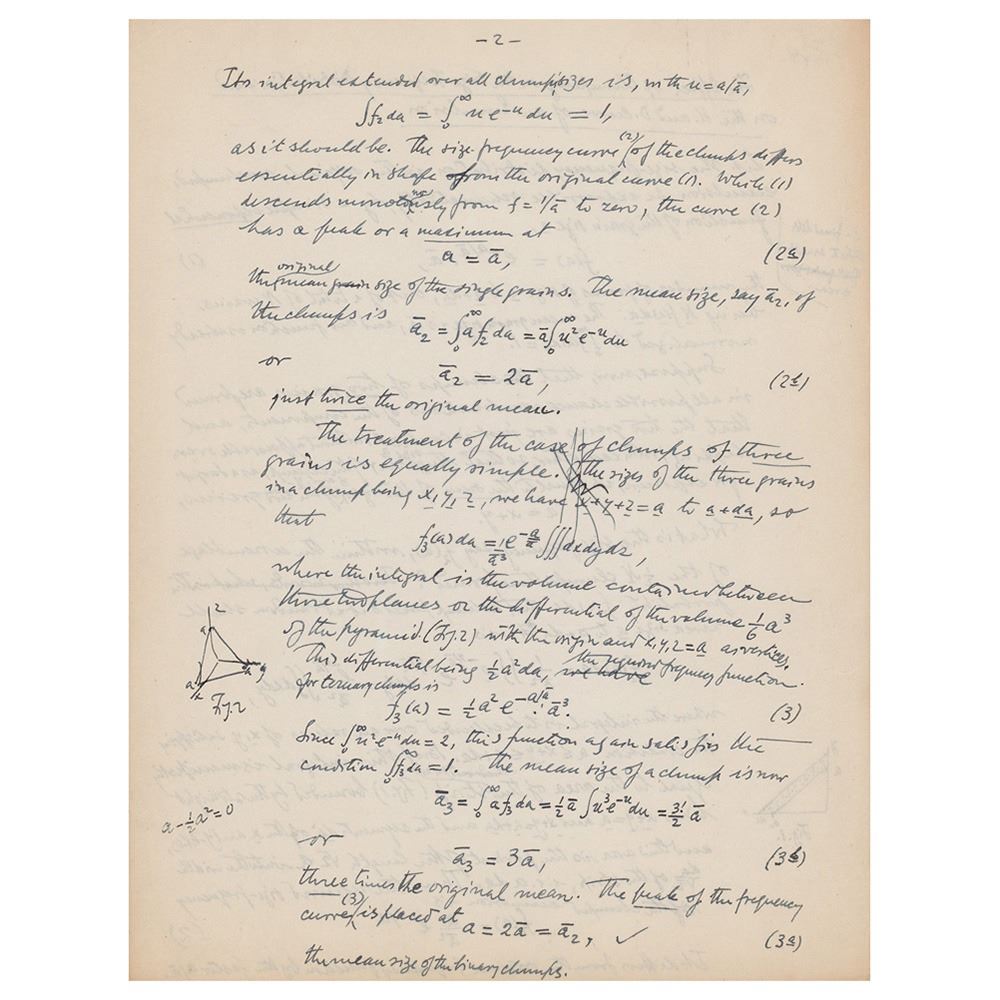 – 2 –
Its integral extended over all clump sizes is, with u = a/ā,
∫f₂da = ∫₀^∞ u e^{-u} du = 1,
as it should be. The size frequency curve (2) of the clumps differs
essentially in shape from the original curve (1). While (1)
descends monotonously from f = 1/ā to zero, the curve (2)
has a peak or a maximum at
a = ā, (2a)
the original mean grain size of the single grains. The mean size, say ā₂, of
the clumps is ā₂ = ∫₀^∞ a f₂ da = ā∫₀^∞ u² e^{-u} du
or
ā₂ = 2ā, (2b)
just twice the original mean.
The treatment of the case of clumps of three
grains is equally simple. The sizes of the three grains
in a clump being x, y, z, we have x+y+z = a to a+da, so
that
f₃(a) da = 1/ā³ e^{-a/ā} ∫∫∫dxdydz,
where the integral is the volume contained between
these two planes or the differential of the volume 1/6 a³
of the pyramid (Fig. 2) with the origin and x, y, z = a as vertices.
This differential being ½a²da, we have the required frequency function
for ternary clumps is
f₃(a) = ½ a² e^{-a/ā} : ā³. (3)
z
a
a
y
a
x
Fig. 2
Since ∫₀^∞ u² e^{-u} du = 2, this function again satisfies the
condition ∫₀^∞ f₃da = 1. The mean size of a clump is now
ā₃ = ∫₀^∞ a f₃ da = ½ ā ∫u³ e^{-u} du = 3!/2 ā
a – ½a² = 0
or
ā₃ = 3ā, (3b)
three times the original mean. The peak of the frequency
curve (3) is placed at
a = 2ā = ā₂, ✓ (3a)
the mean size of the binary clumps.